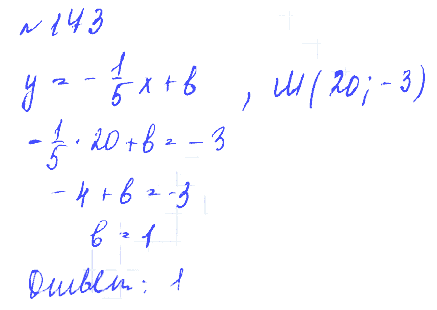 № 143
y = -1/5 x + b , M(20; -3)
-1/5 · 20 + b = -3
-4 + b = -3
b = 1
Ответ: 1